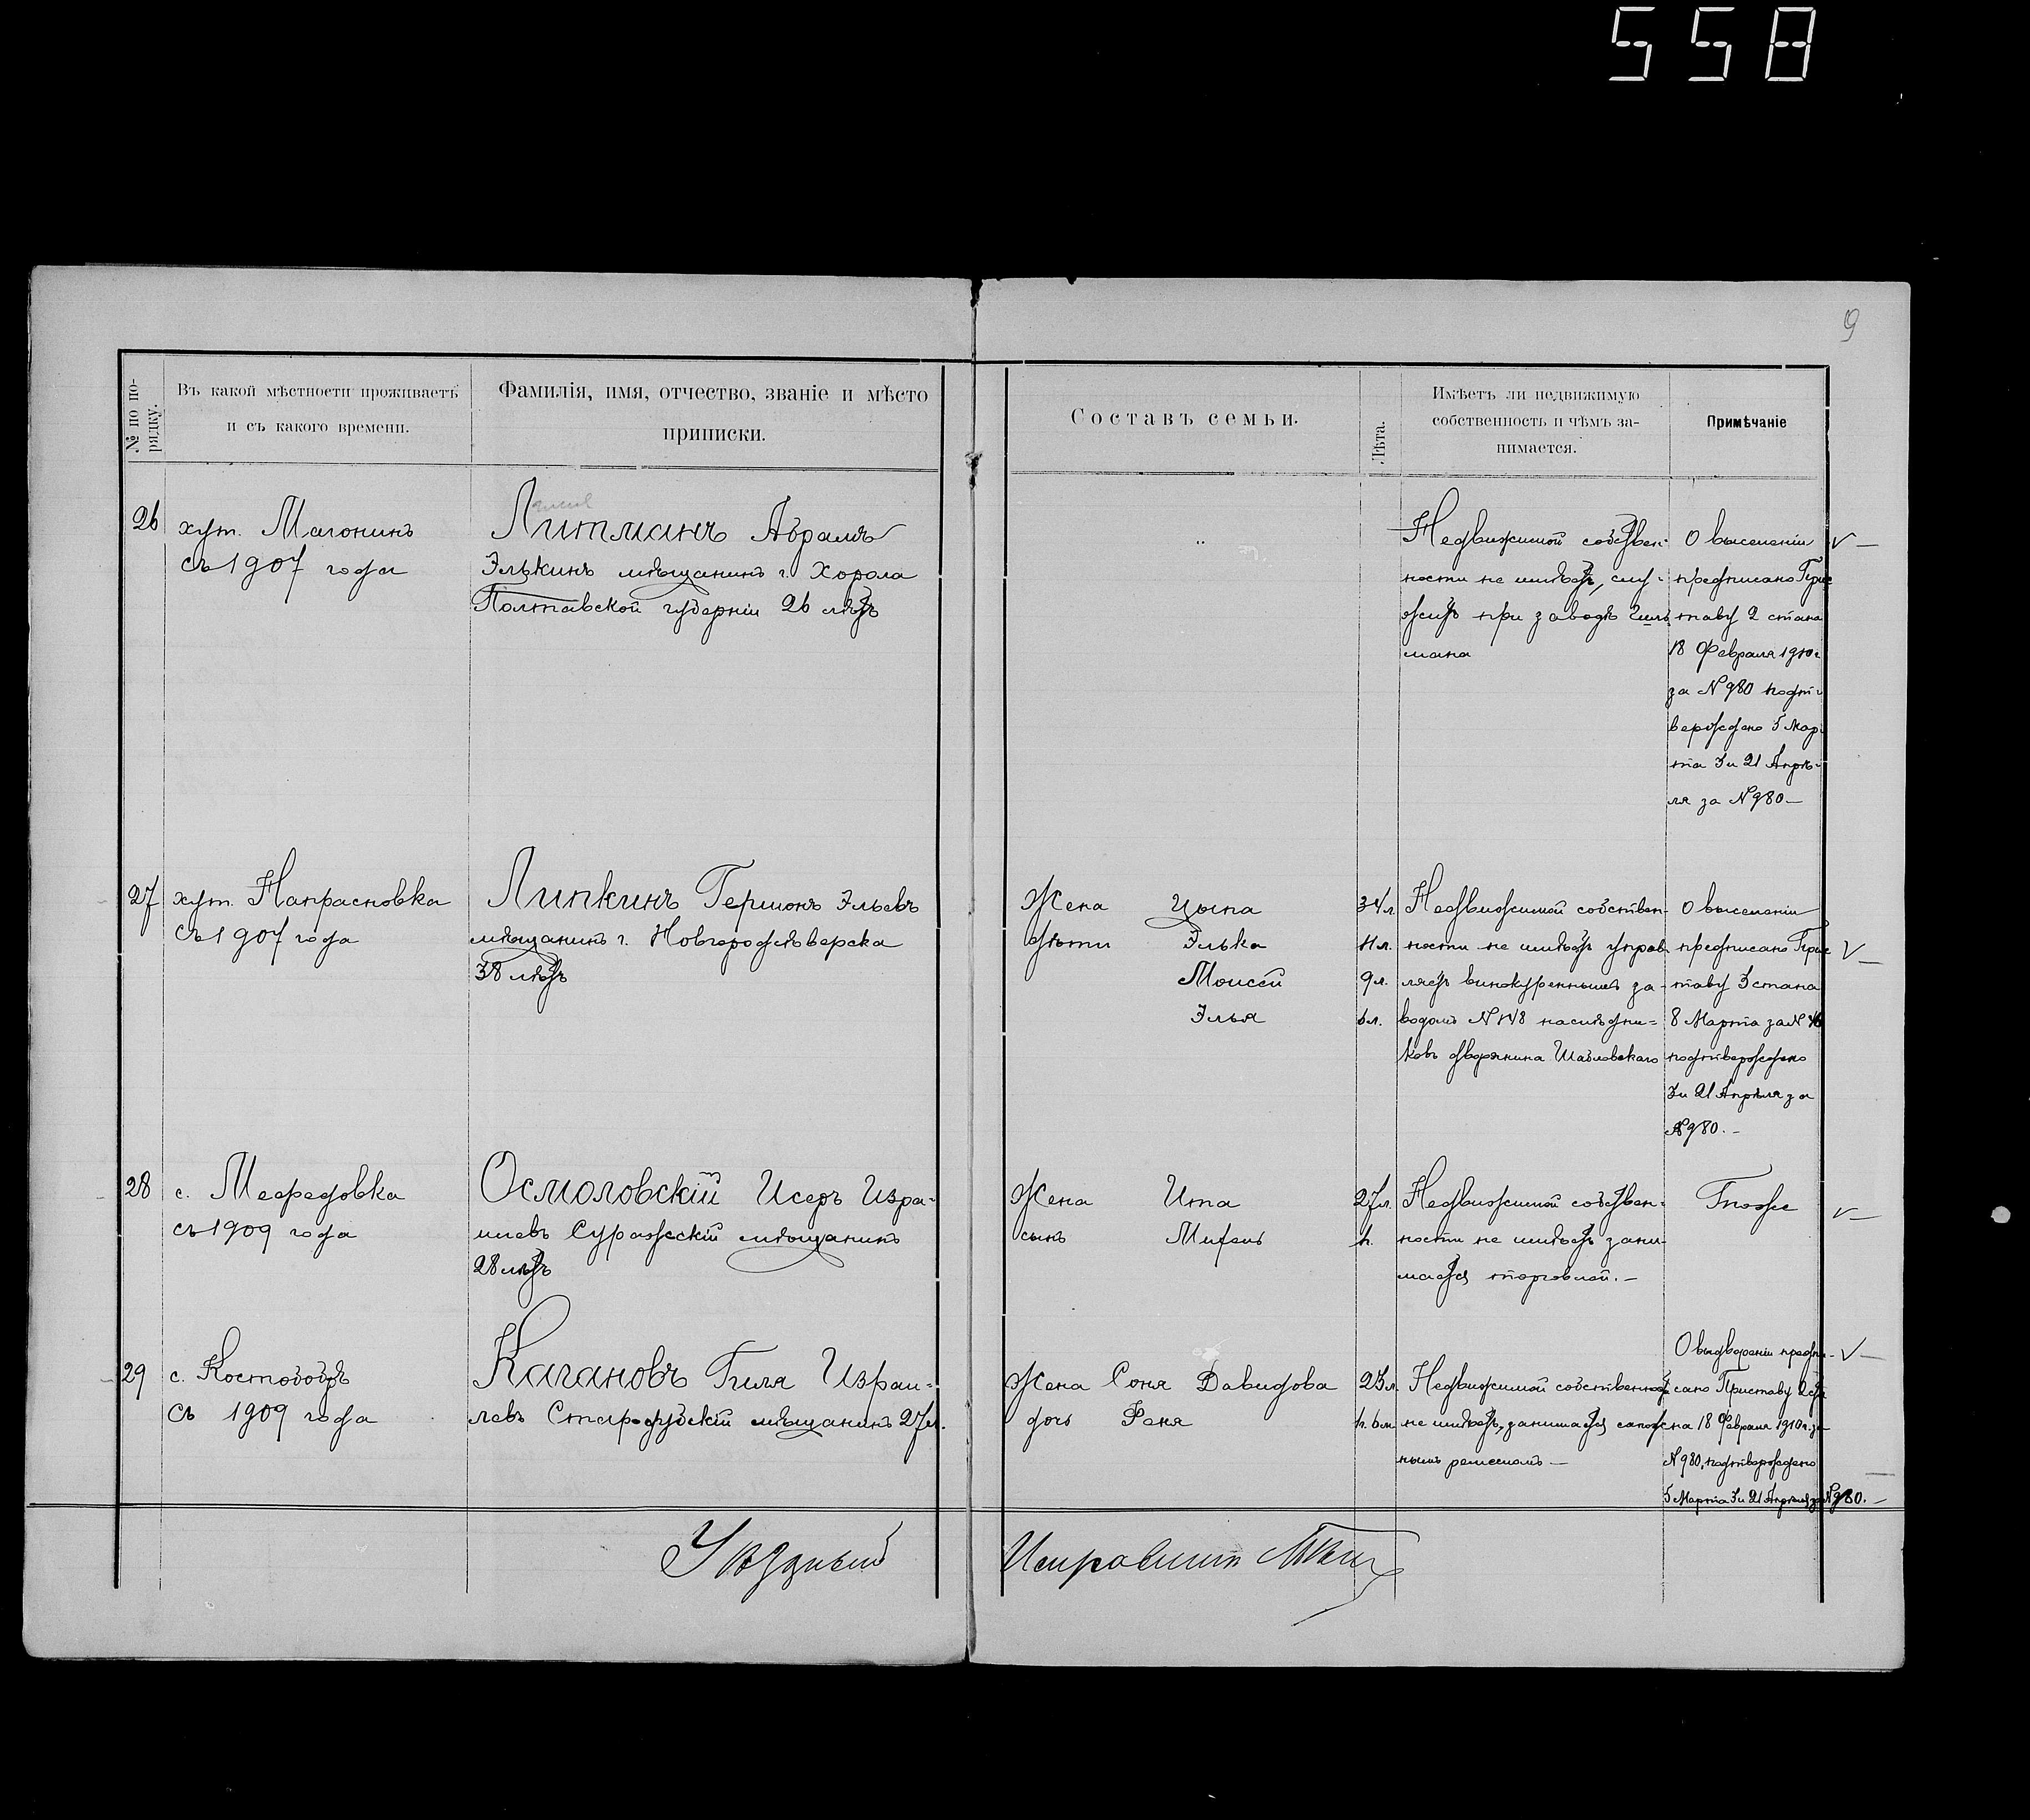 558
9
№ по по-
рядку.
Въ какой мѣстности проживаетъ
и съ какого времени.
Фамилія, имя, отчество, званіе и мѣсто
приписки.
Составъ семьи.
Лѣта.
Имѣетъ ли недвижимую
собственность и чѣмъ за-
нимается.
Примѣчаніе
26
хут. Магонинъ
съ 1907 года
Литманъ Абрамъ
Элькинъ мѣщанинъ г. Хорола
Полтавской губерніи 26 лѣтъ
Недвижимой собствен-
ности не имѣетъ, слу-
житъ при заводѣ
мана
О выселеніи
предписано Прис
таву 2 стана
18 Февраля 1910 г
за N 980 подт-
верждено 5 Мар-
та 3 и 21 Апрѣ-
ля за N 980 —
27
хут. Напрасновка
съ 1907 года
Липкинъ Гершонъ Эльевъ
мѣщанинъ г. Новгородсѣверска
38 лѣтъ
Жена Цыпа 34 л.
дѣти Элька 11 л.
Моисей 9 л.
Элья 6 л.
Недвижимой собствен-
ности не имѣетъ управ-
ляетъ винокуреннымъ за-
водомъ N 148 наслѣдни-
ковъ дворянина Шабловскаго
О выселеніи
предписано Прис
таву 3 стана
8 Марта за N
подтверждено
3 и 21 Апрѣля за
N 980. —
28
с. Мефедовка
съ 1909 года
Осмоловскій Исеръ Изра-
илевъ Суражскій мѣщанинъ
28 лѣтъ
Жена Ита 27 л.
сынъ
Недвижимой собствен-
ности не имѣетъ зани-
мается торговлей. —
Тоже
29
с. Костобобръ
съ 1909 года
Кагановъ Гиля Израи-
левъ Стародубскій мѣщанинъ 27 л.
Жена Соня Давидова 23 л.
дочь Феня
Недвижимой собственност
не имѣетъ, занимается сапож
нымъ ремесломъ —
О выдвореніи предпи-
сано Приставу 2 ст
на 18 Февраля 1910 г. за
N 980, подтверждено
5 Марта 3 и 21 Апрѣля за N 980. —
Уѣздный Исправникъ